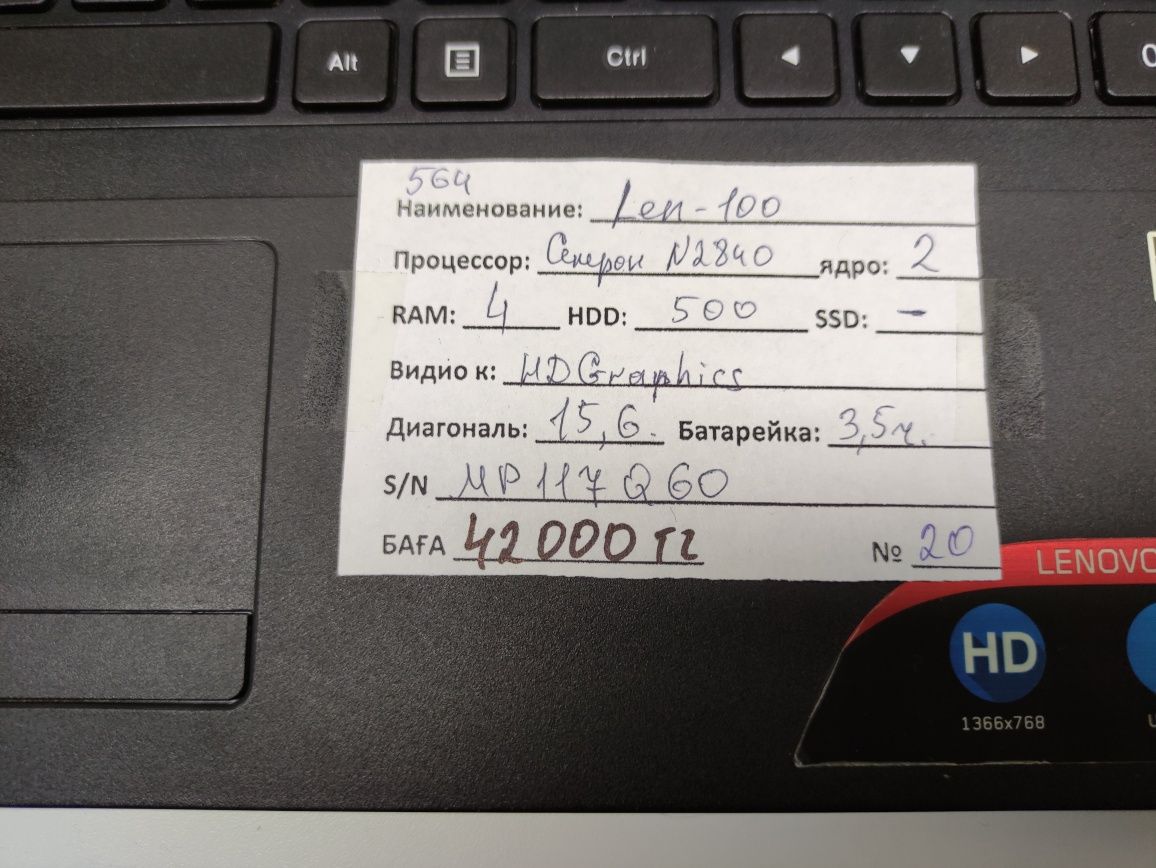 Alt Ctrl
564
Наименование: Len-100
Процессор: Селерон N2840 ядро: 2
RAM: 4 HDD: 500 SSD: -
Видио к: HD Graphics
Диагональ: 15,6. Батарейка: 3,5ч.
S/N MP117Q60
БАҒА 42000 тг № 20
LENOVO
HD
1366x768